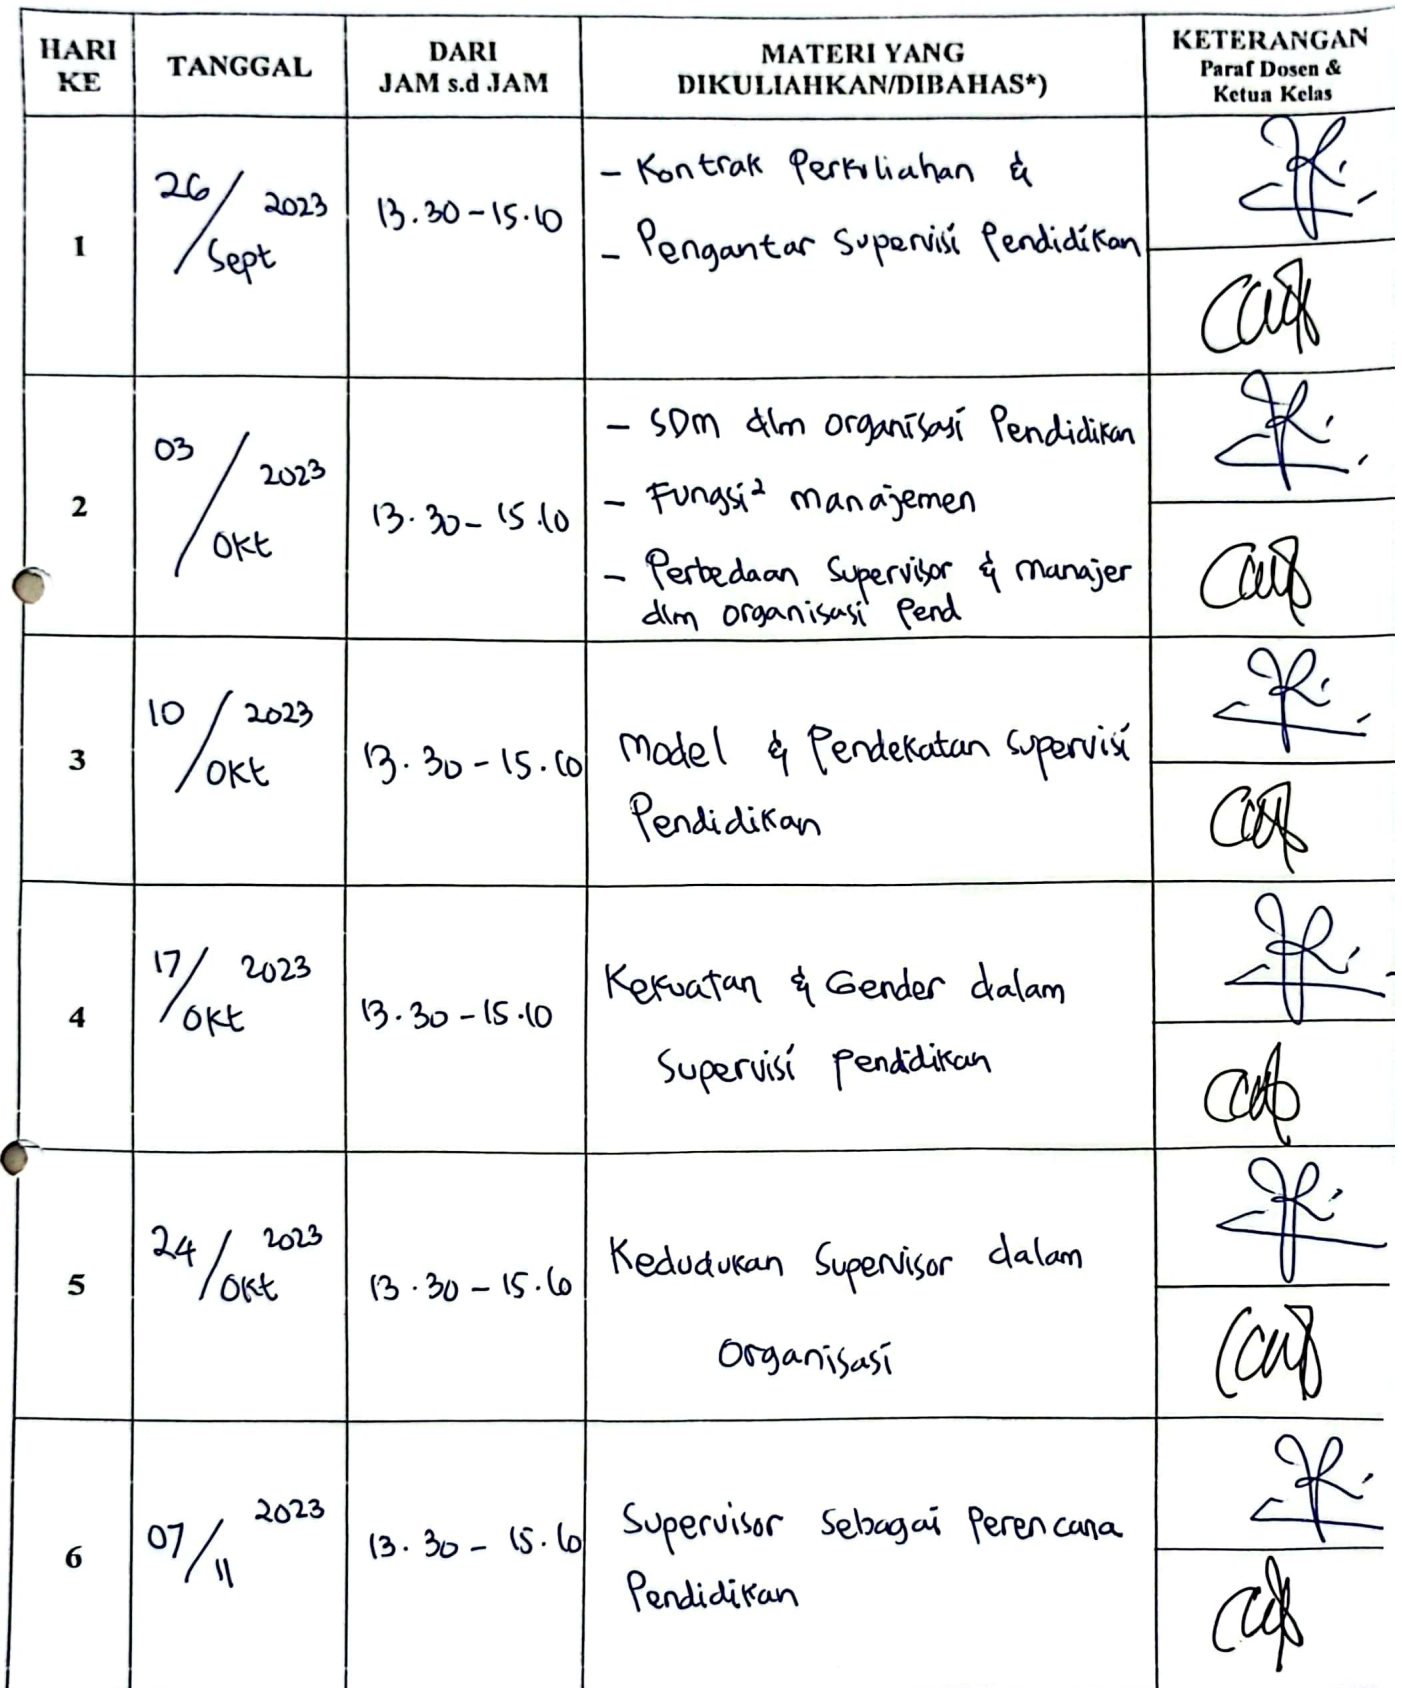 HARI KE
TANGGAL
DARI
JAM s.d JAM
MATERI YANG
DIKULIAHKAN/DIBAHAS*)
KETERANGAN
Paraf Dosen &
Ketua Kelas
1
26/Sept 2023
13.30-15.10
- Kontrak Perkuliahan &
- Pengantar Supervisi Pendidikan
2
03/Okt 2023
13.30-15.10
- SDM dlm organisasi Pendidikan
- Fungsi² manajemen
- Perbedaan Supervisor & manajer
dlm organisasi Pend
3
10/Okt 2023
13.30-15.10
Model & Pendekatan Supervisi
Pendidikan
4
17/Okt 2023
13.30-15.10
Kekuatan & Gender dalam
Supervisi pendidikan
5
24/Okt 2023
13.30-15.10
Kedudukan Supervisor dalam
Organisasi
6
07/11 2023
13.30-15.10
Supervisor Sebagai Perencana
Pendidikan